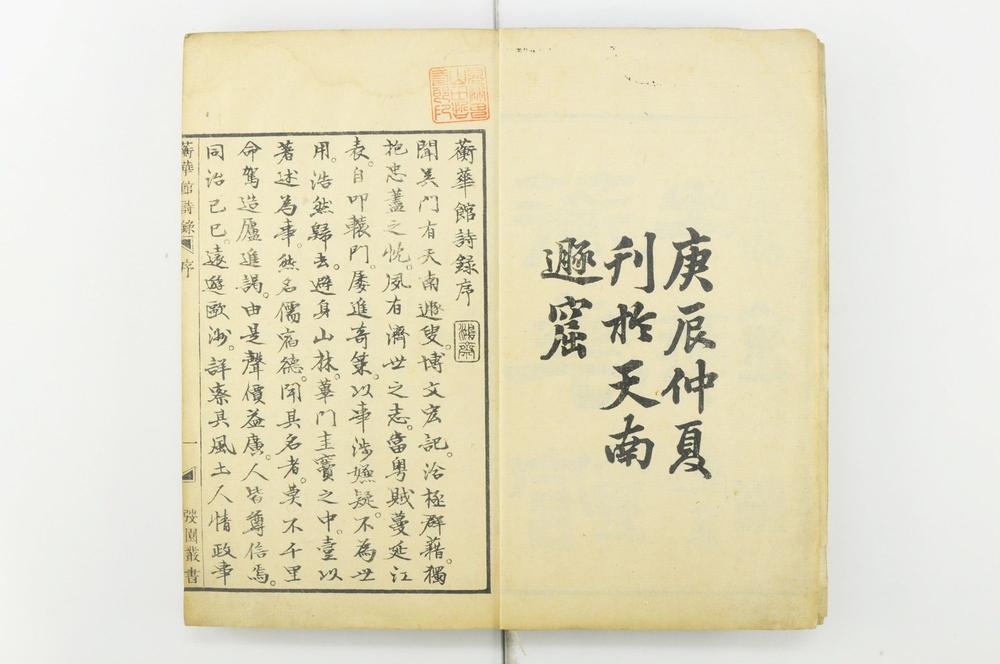 庚辰仲夏
刊於天南
遯窟
蘅華館詩錄序 鴻齋
聞吳門有天南遯叟。博文宏記。洽極群藉。獨
抱忠藎之忱。夙有濟世之志。當粤賊蔓延江
表。自叩轅門。屡進奇策。以事涉嫌疑。不為世
用。浩然歸去。避身山林。蓽門圭竇之中。壹以
著述為事。然名儒宿德。聞其名者。莫不千里
命駕造廬進謁。由是聲價益廣。人皆尊信焉。
同治己巳。遠遊歐洲。詳察其風土人情政事
蘅華館詩錄 序 一 弢園叢書